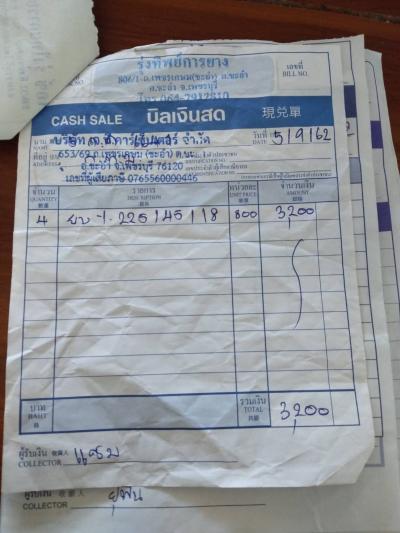 รุ่งทิพย์การยาง
806/1 ถ.เพชรเกษม(ชะอำ) ต.ชะอำ
อ.ชะอำ จ.เพชรบุรี
โทร.064-7912810
เลขที่
BILL NO.
CASH SALE บิลเงินสด 現兑單
นาม
NAME
วันที่
DATE
5/9/62
653/62 ถ.เพชรเกษม (ชะอำ) ต.ชะอำ
อ.ชะอำ จ.เพชรบุรี 76120
เลขที่ผู้เสียภาษี 0765560000446
ที่อยู่
ADDRESS
จำนวน รายการ หน่วยละ จำนวนเงิน
QUANTITY DESCRIPTION UNIT PRICE AMOUNT
4 225/45/18 800 3,200
บาท
BAHT
รวมเงิน
TOTAL
3,200
ผู้รับเงิน 收銀人
COLLECTOR
แซม
ผู้รับเงิน 收銀人
COLLECTOR